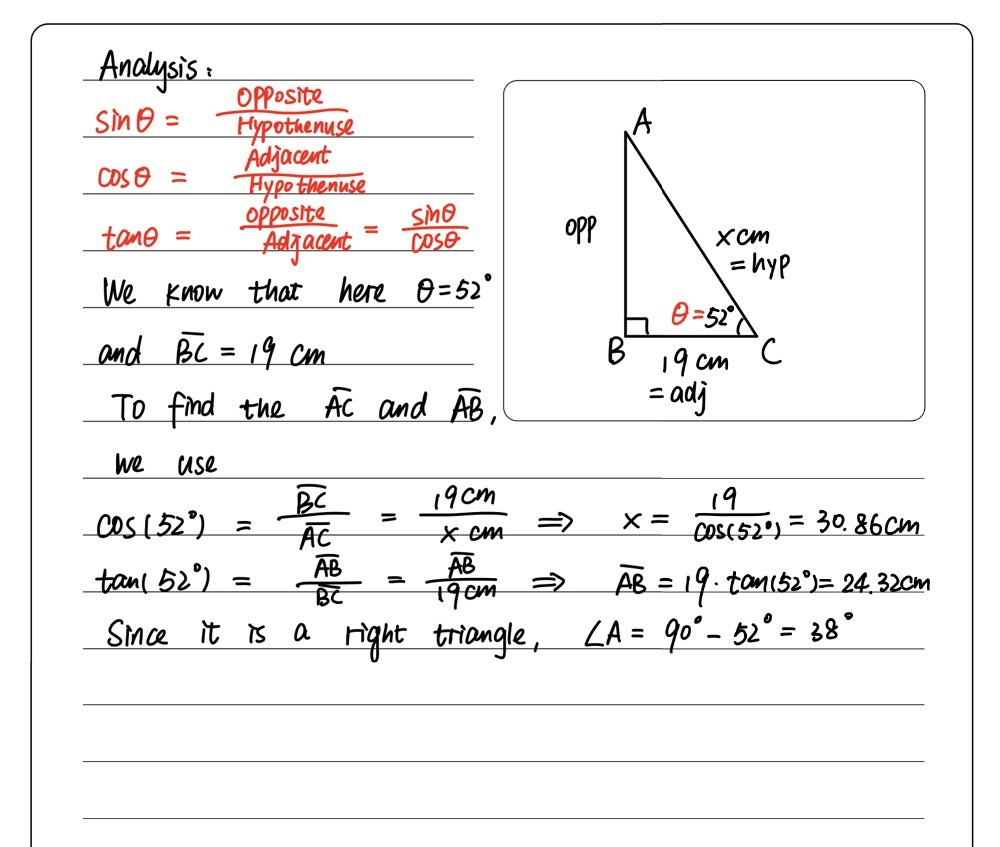 Analysis:
sinθ = Opposite / Hypothenuse
cosθ = Adjacent / Hypothenuse
tanθ = opposite / Adjacent = sinθ / cosθ
We know that here θ=52°
and B̅C̅ = 19 cm
To find the A̅C̅ and A̅B̅,
we use
cos(52°) = B̅C̅ / A̅C̅ = 19cm / x cm ⇒ x = 19 / cos(52°) = 30.86cm
tan(52°) = A̅B̅ / B̅C̅ = A̅B̅ / 19cm ⇒ A̅B̅ = 19·tan(52°)= 24.32cm
Since it is a right triangle, ∠A = 90° − 52° = 38°
A
opp
x cm
= hyp
θ=52°
B
C
19 cm
= adj